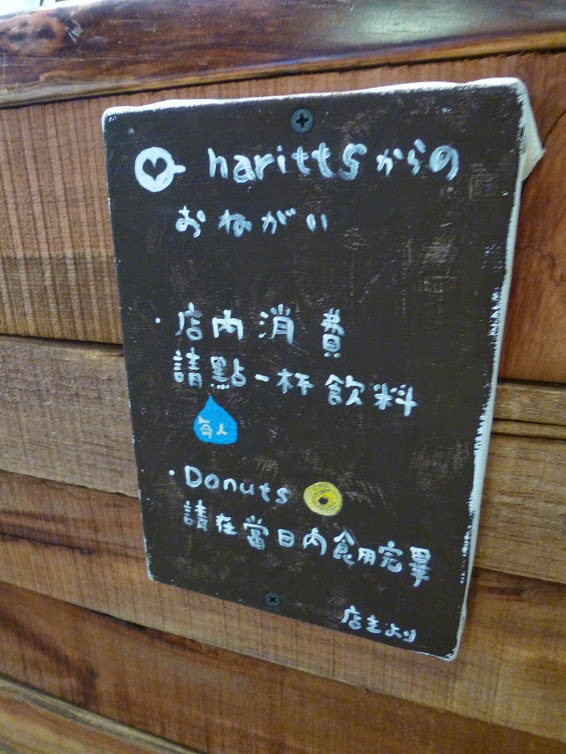 harittsからの
おねがい
・店內消費
請點一杯飲料
每人
・Donuts
請在當日內食用完畢
店主より